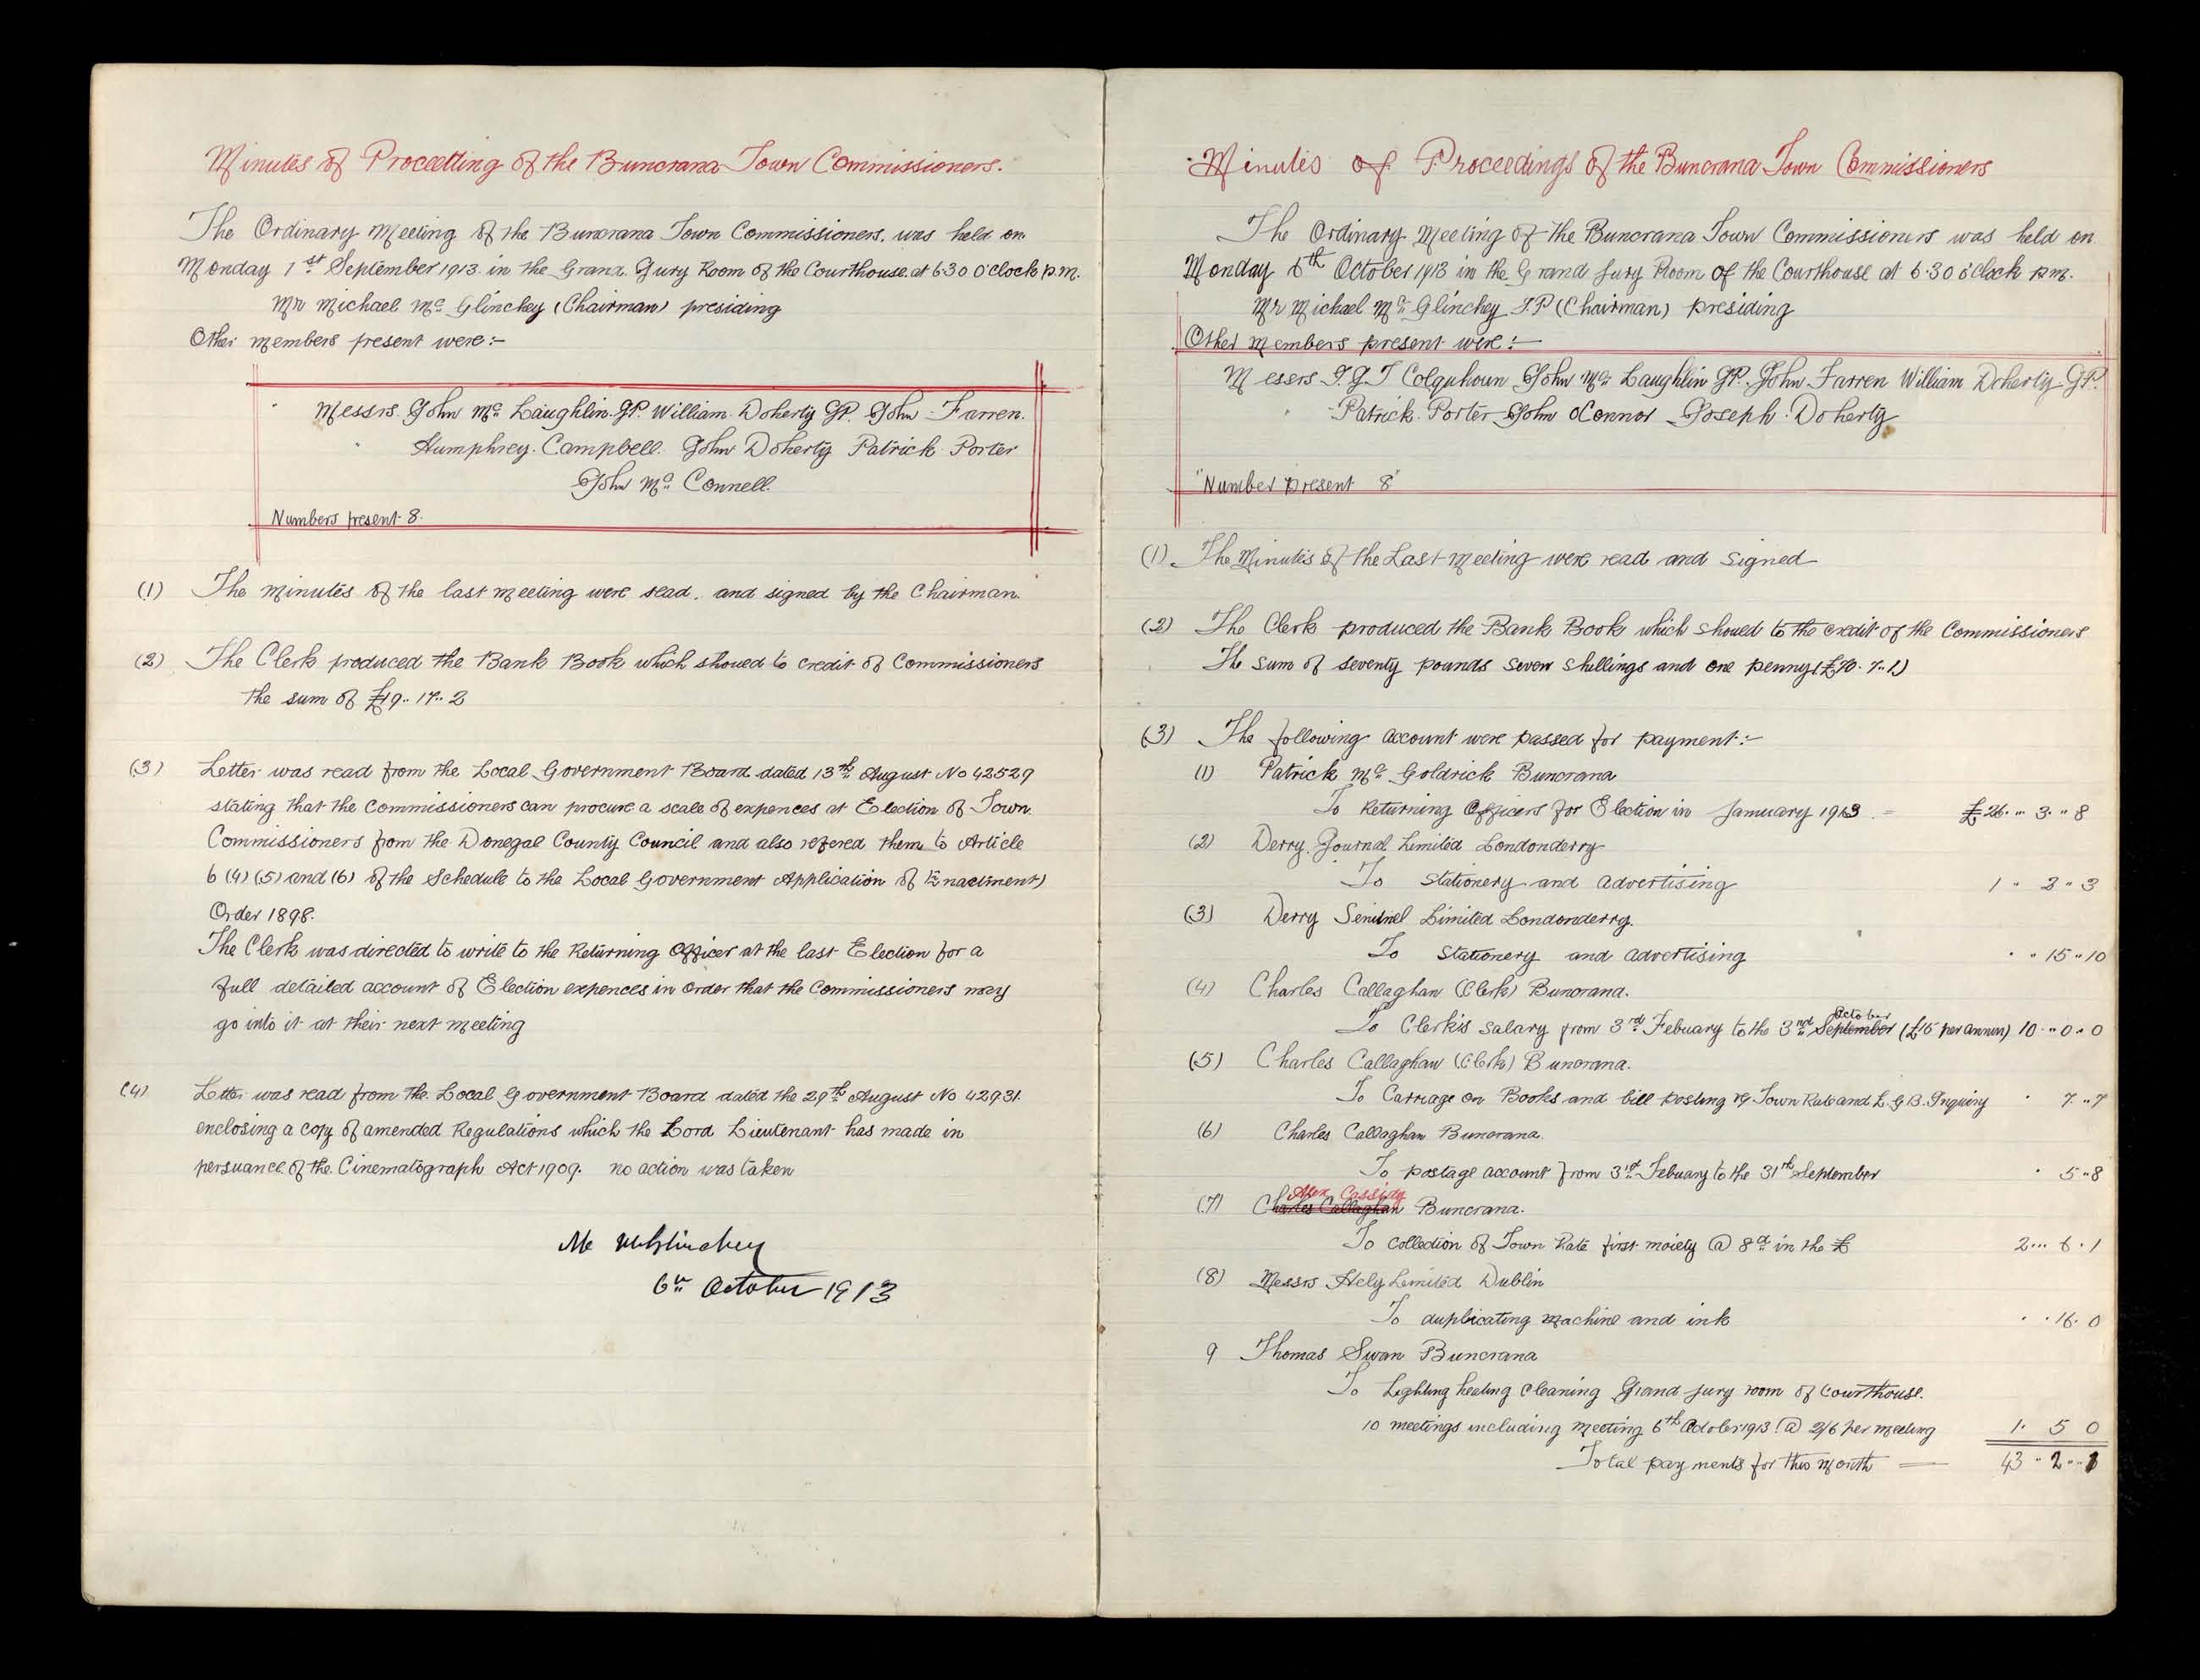 Minutes of Proceetting of the Buncrana Town Commissioners.
The Ordinary Meeting of the Buncrana Town Commissioners. was held on
Monday 1st September 1913 in the Grand Jury Room of the Courthouse. at 6.30 o'clock p.m.
Mr Michael Mc Glinchey (Chairman) presiding
Other members present were:-
Messrs. John Mc Laughlin. J.P. William Doherty J.P. John Farren.
Humphrey Campbell. John Doherty Patrick Porter
John Mc Connell.
Numbers present 8.
(1) The minutes of the last meeting were read. and signed by the Chairman.
(2) The Clerk produced the Bank Book which showed to credit of Commissioners
the sum of £19.. 17.. 2
(3) Letter was read from the Local Government Board dated 13th August No 42529
stating that the Commissioners can procure a scale of expences at Election of Town
Commissioners from the Donegal County Council and also refered them to Article
6 (4) (5) and (6) of the Schedule to the Local Government Application of Enactment)
Order 1898.
The Clerk was directed to write to the Returning Officer at the last Election for a
full detailed account of Election expences in order that the Commissioners may
go into it at their next meeting
(4) Letter was read from the Local Government Board dated the 29th August No 42931.
enclosing a copy of amended Regulations which the Lord Lieutenant has made in
persuance of the Cinematograph Act 1909. no action was taken
6th October 1913
Minutes of Proceedings of the Buncrana Town Commissioners
The Ordinary Meeting of the Buncrana Town Commissioners was held on
Monday 6th October 1913 in the Grand Jury Room of the Courthouse at 6.30 o'clock p.m.
Mr Michael Mc Glinchey J.P (Chairman) presiding
Other members present were:-
Messrs J.G.T Colquhoun John Mc Laughlin J.P. John Farren William Doherty J.P.
Patrick Porter John O'Connor Joseph Doherty
"Number present 8"
(1) The Minutes of the Last meeting were read and signed
(2) The Clerk produced the Bank Book which showed to the credit of the Commissioners
The sum of seventy pounds seven shillings and one penny (£70. 7.. 1)
(3) The following Account were passed for payment:-
(1) Patrick Mc Goldrick Buncrana
To Returning Officers for Election in January 1913 £26.. 3.. 8
(2) Derry Journal Limited Londonderry
To Stationery and Advertising 1 .. 2 .. 3
(3) Derry Sentinel Limited Londonderry.
To Stationery and advertising 15 .. 10
(4) Charles Callaghan (Clerk) Buncrana.
To Clerk's salary from 3rd Febuary to the 3rd September October (£15 per annum) 10 .. 0 .. 0
(5) Charles Callaghan (Clerk) Buncrana.
To Carriage on Books and bill posting re Town Rate and L.G.B. Inquiry 7 .. 7
(6) Charles Callaghan Buncrana.
To postage account from 3rd Febuary to the 31th September 5 .. 8
(7) Charles Callaghan Alex Cassidy Buncrana.
To collection of Town Rate first moiety @ 8d in the £ 2 ... 6 . 1
(8) Messrs Hely Limited Dublin
To duplicating machine and ink 16. 0
9 Thomas Swan Buncrana
To Lighting heating cleaning Grand jury room of courthouse.
10 meetings including meeting 6th October 1913 @ 2/6 per meeting 1. 5 0
Total payments for this month 43 .. 2 .. 1